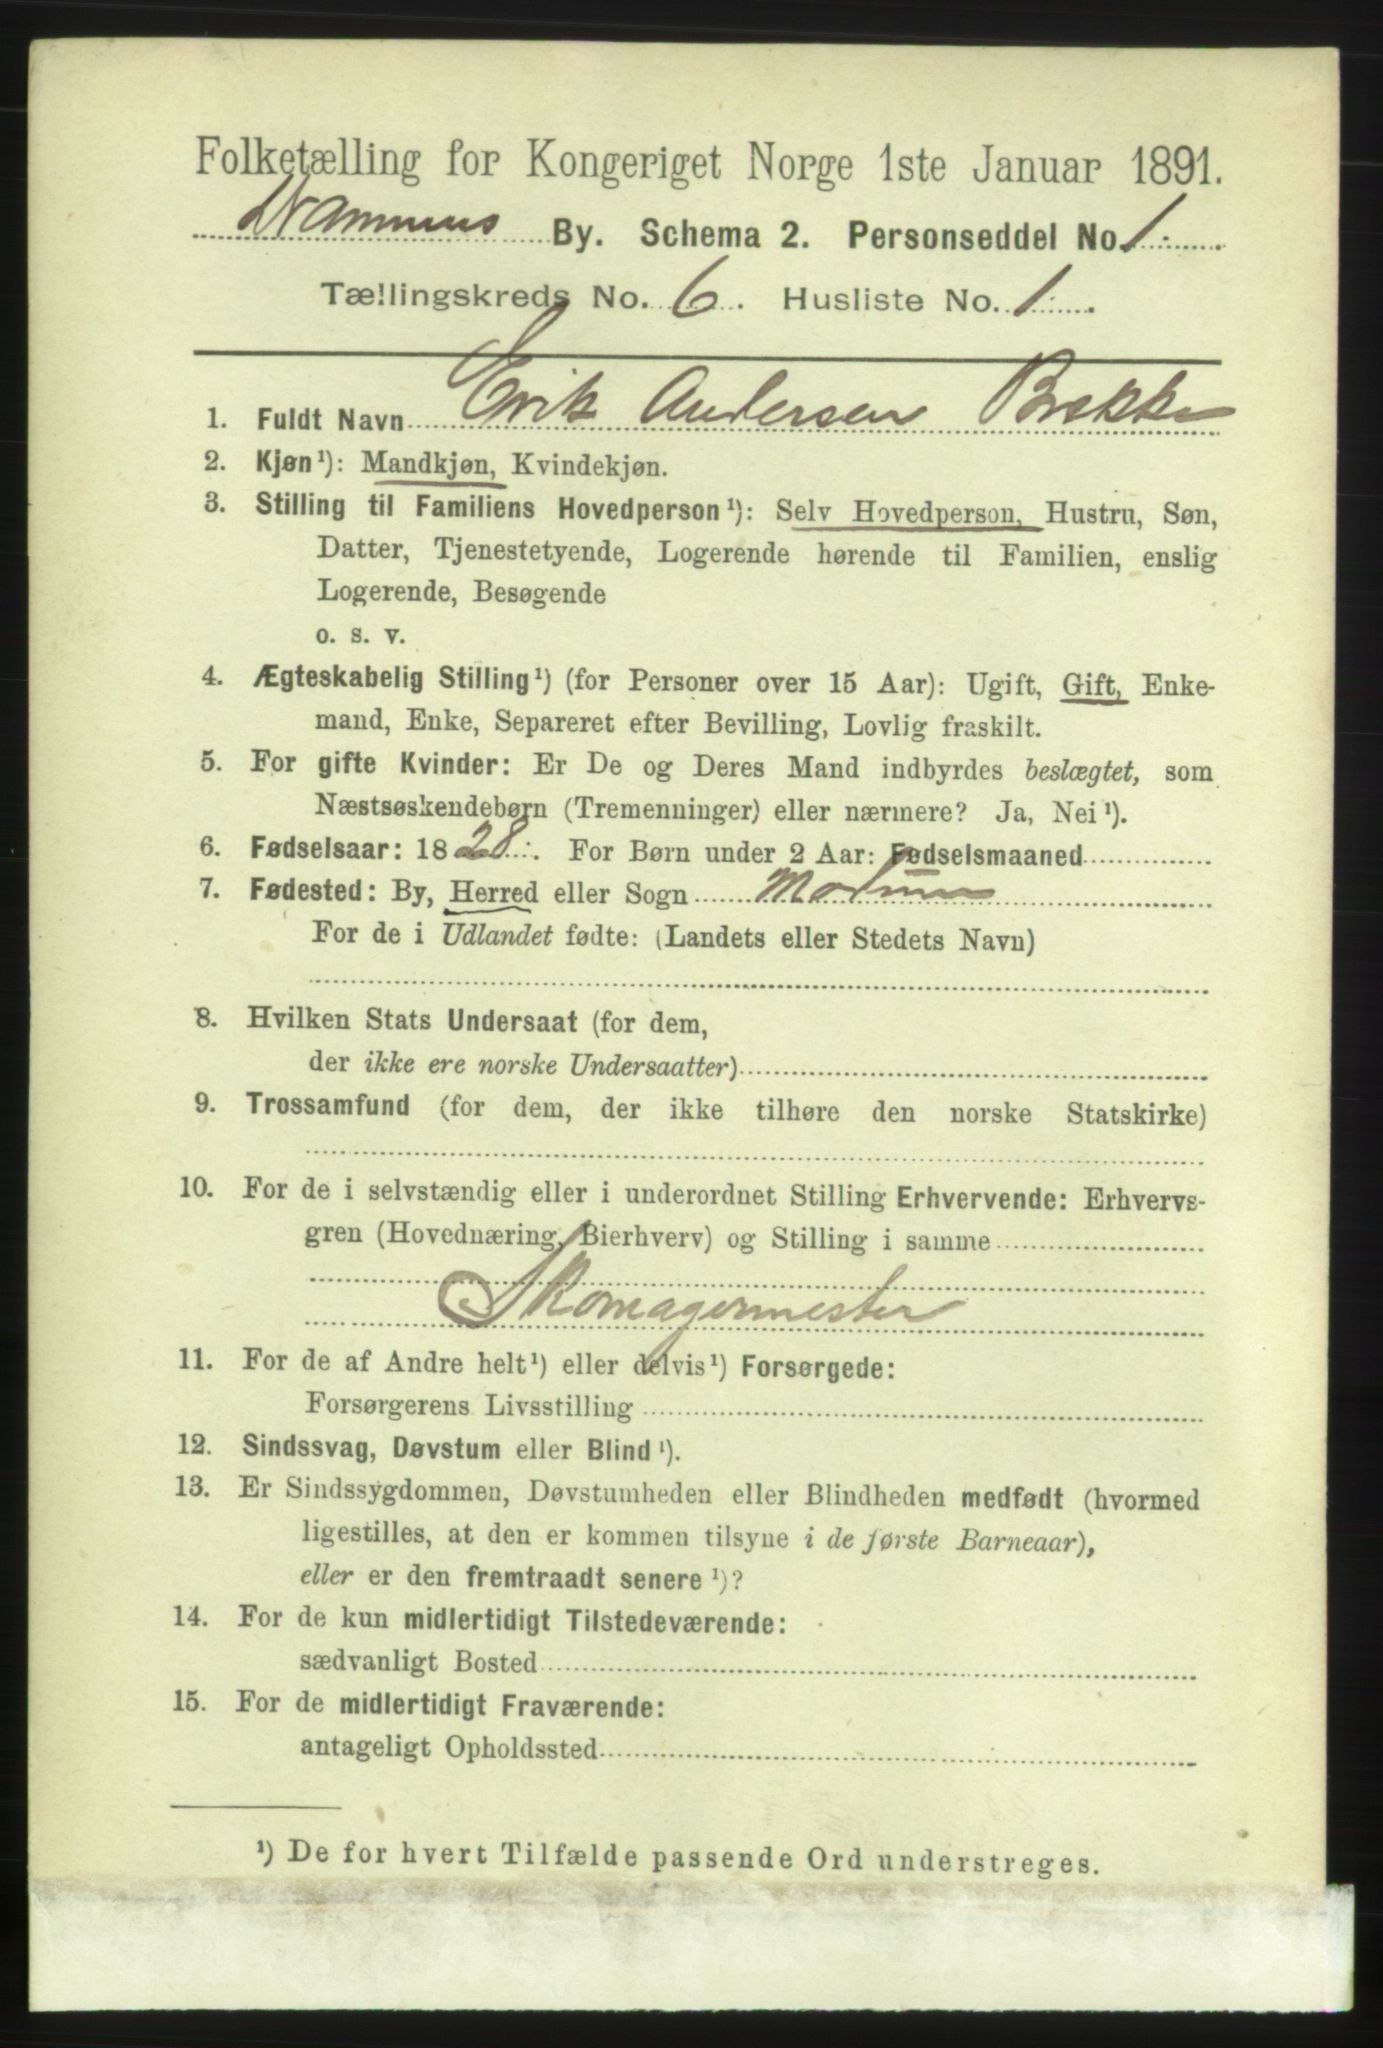 Folketælling for Kongeriget Norge 1ste Januar 1891.
Drammens By. Schema 2. Personseddel No. 1.
Tællingskreds No. 6. Husliste No. 1.
1. Fuldt Navn Erik Andersen Brekke
2. Kjøn ¹): Mandkjøn, Kvindekjøn.
3. Stilling til Familiens Hovedperson ¹): Selv Hovedperson, Hustru, Søn,
Datter, Tjenestetyende, Logerende hørende til Familien, enslig
Logerende, Besøgende
o. s. v.
4. Ægteskabelig Stilling ¹) (for Personer over 15 Aar): Ugift, Gift, Enke-
mand, Enke, Separeret efter Bevilling, Lovlig fraskilt.
5. For gifte Kvinder: Er De og Deres Mand indbyrdes beslægtet, som
Næstsøskendebørn (Tremenninger) eller nærmere? Ja, Nei ¹).
6. Fødselsaar: 1828. For Børn under 2 Aar: Fødselsmaaned
7. Fødested: By, Herred eller Sogn Modum
For de i Udlandet fødte: (Landets eller Stedets Navn)
8. Hvilken Stats Undersaat (for dem,
der ikke ere norske Undersaatter)
9. Trossamfund (for dem, der ikke tilhøre den norske Statskirke)
10. For de i selvstændig eller i underordnet Stilling Erhvervende: Erhvervs-
gren (Hovednæring, Bierhverv) og Stilling i samme
Skomagermester
11. For de af Andre helt ¹) eller delvis ¹) Forsørgede:
Forsørgerens Livsstilling
12. Sindssvag, Døvstum eller Blind ¹).
13. Er Sindssygdommen, Døvstumheden eller Blindheden medfødt (hvormed
ligestilles, at den er kommen tilsyne i de første Barneaar),
eller er den fremtraadt senere ¹)?
14. For de kun midlertidigt Tilstedeværende:
sædvanligt Bosted
15. For de midlertidigt Fraværende:
antageligt Opholdssted
¹) De for hvert Tilfælde passende Ord understreges.